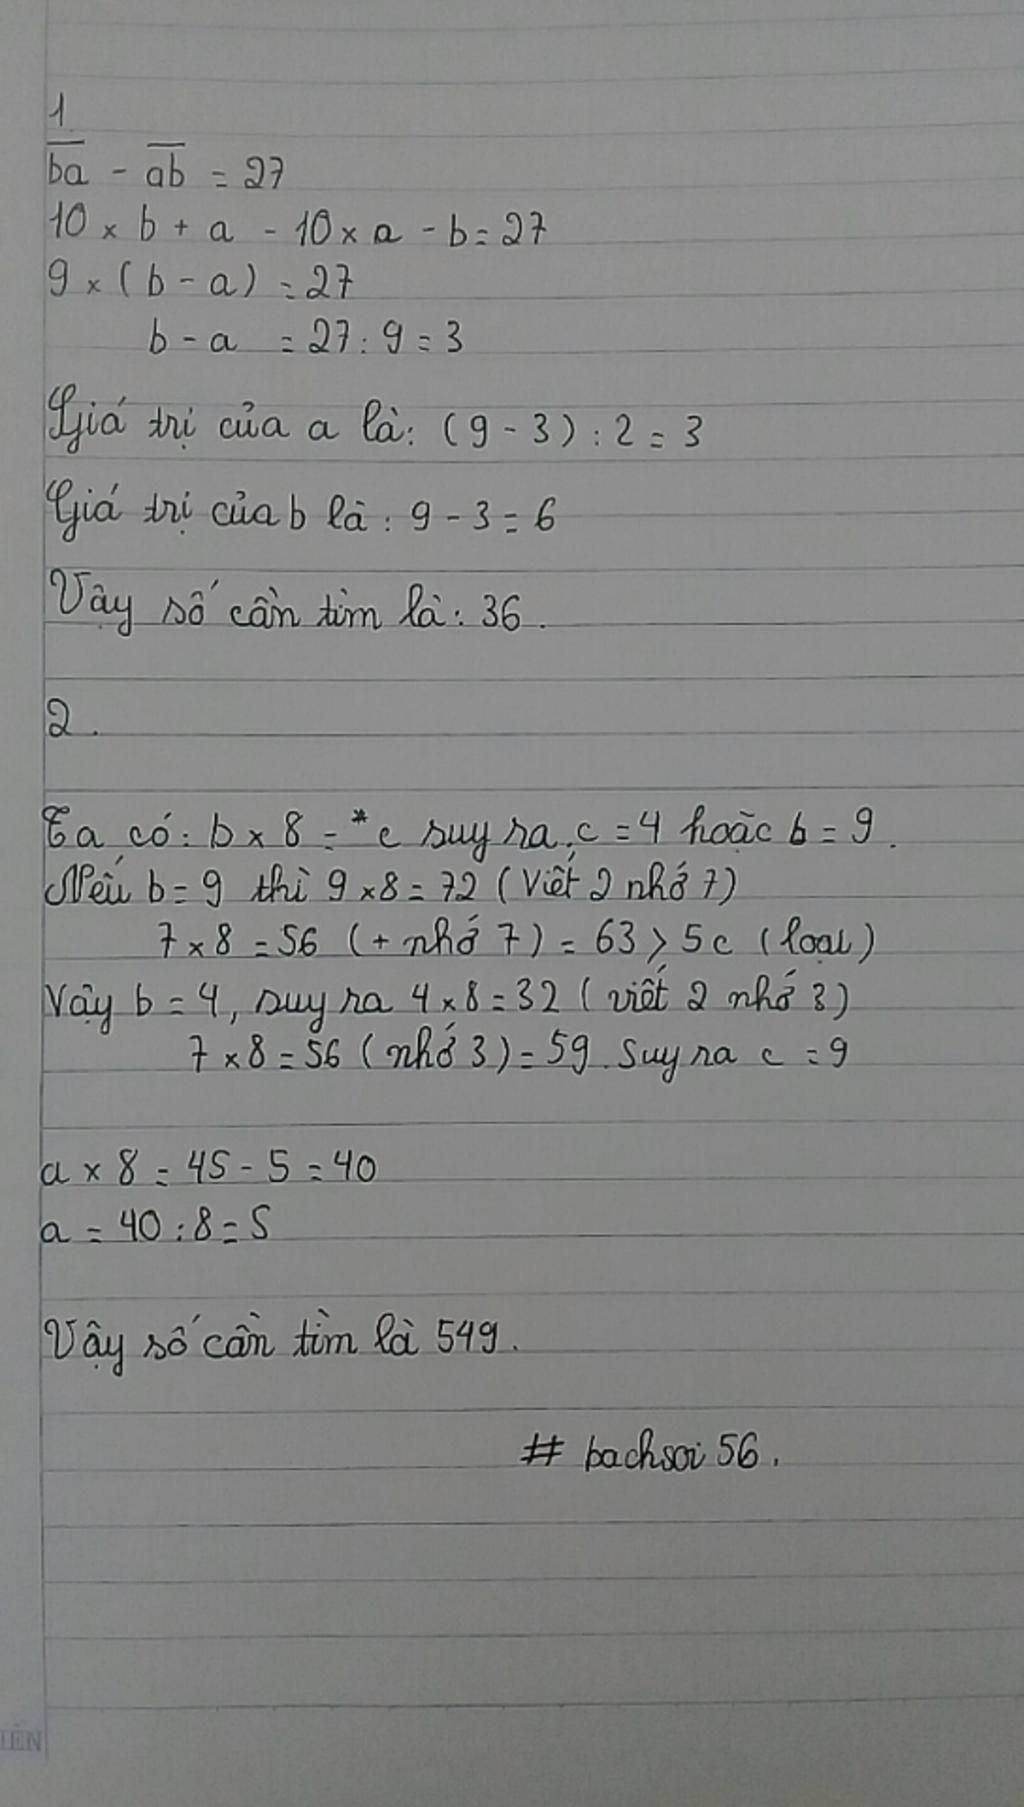 1
ba - ab = 27
10 × b + a - 10 × a - b = 27
9 × (b - a) = 27
b - a = 27 : 9 = 3
Giá trị của a là: (9 - 3) : 2 = 3
Giá trị của b là: 9 - 3 = 6
Vậy số cần tìm là: 36.
2.
Ta có: b × 8 = *c suy ra c = 4 hoặc b = 9.
Nếu b = 9 thì 9 × 8 = 72 (Viết 2 nhớ 7)
7 × 8 = 56 (+ nhớ 7) = 63 > 5c (loại)
Vậy b = 4, suy ra 4 × 8 = 32 (viết 2 nhớ 3)
7 × 8 = 56 (nhớ 3) = 59. Suy ra c = 9
a × 8 = 45 - 5 = 40
a = 40 : 8 = 5
Vậy số cần tìm là 549.
# bachsoi 56.
IÊN